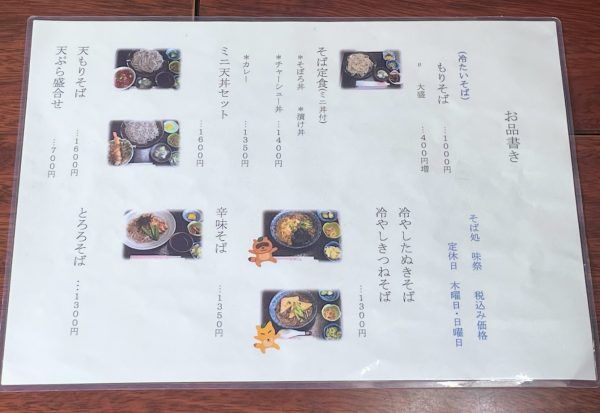 お品書き
(冷たいそば)
もりそば …1000円
〃 大盛 …400円増
そば定食(ミニ丼付)
*そぼろ丼 *漬け丼
*チャーシュー丼 …1400円
*カレー …1350円
ミニ天丼セット …1600円
天もりそば …1600円
天ぷら盛合せ …700円
そば処 味祭 税込み価格
定休日 木曜日・日曜日
冷やしたぬきそば
冷やしきつねそば …1300円
辛味そば …1350円
とろろそば …1300円